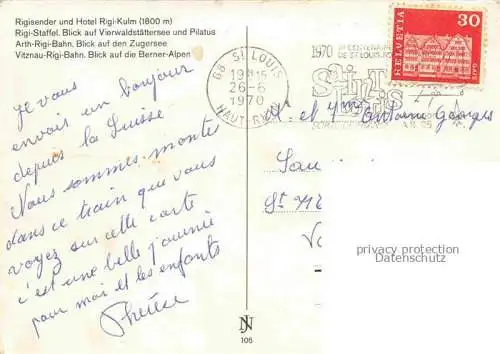 Rigisender und Hotel Rigi-Kulm (1800 m)
Rigi-Staffel. Blick auf Vierwaldstättersee und Pilatus
Arth-Rigi-Bahn. Blick auf den Zugersee
Vitznau-Rigi-Bahn. Blick auf die Berner-Alpen
Je vous
envoi un bonjour
depuis la Suisse
Nous sommes monté
dans ce train que vous
voyez sur cette carte
c'est une belle journée
pour moi et les enfants
Thérèse
68 ST LOUIS
26-6
1970
HAUT-RHIN
1970
HELVETIA
30
GAIS
M. et Mme Antoine Georges
St
privacy protection
Datenschutz
JN
105